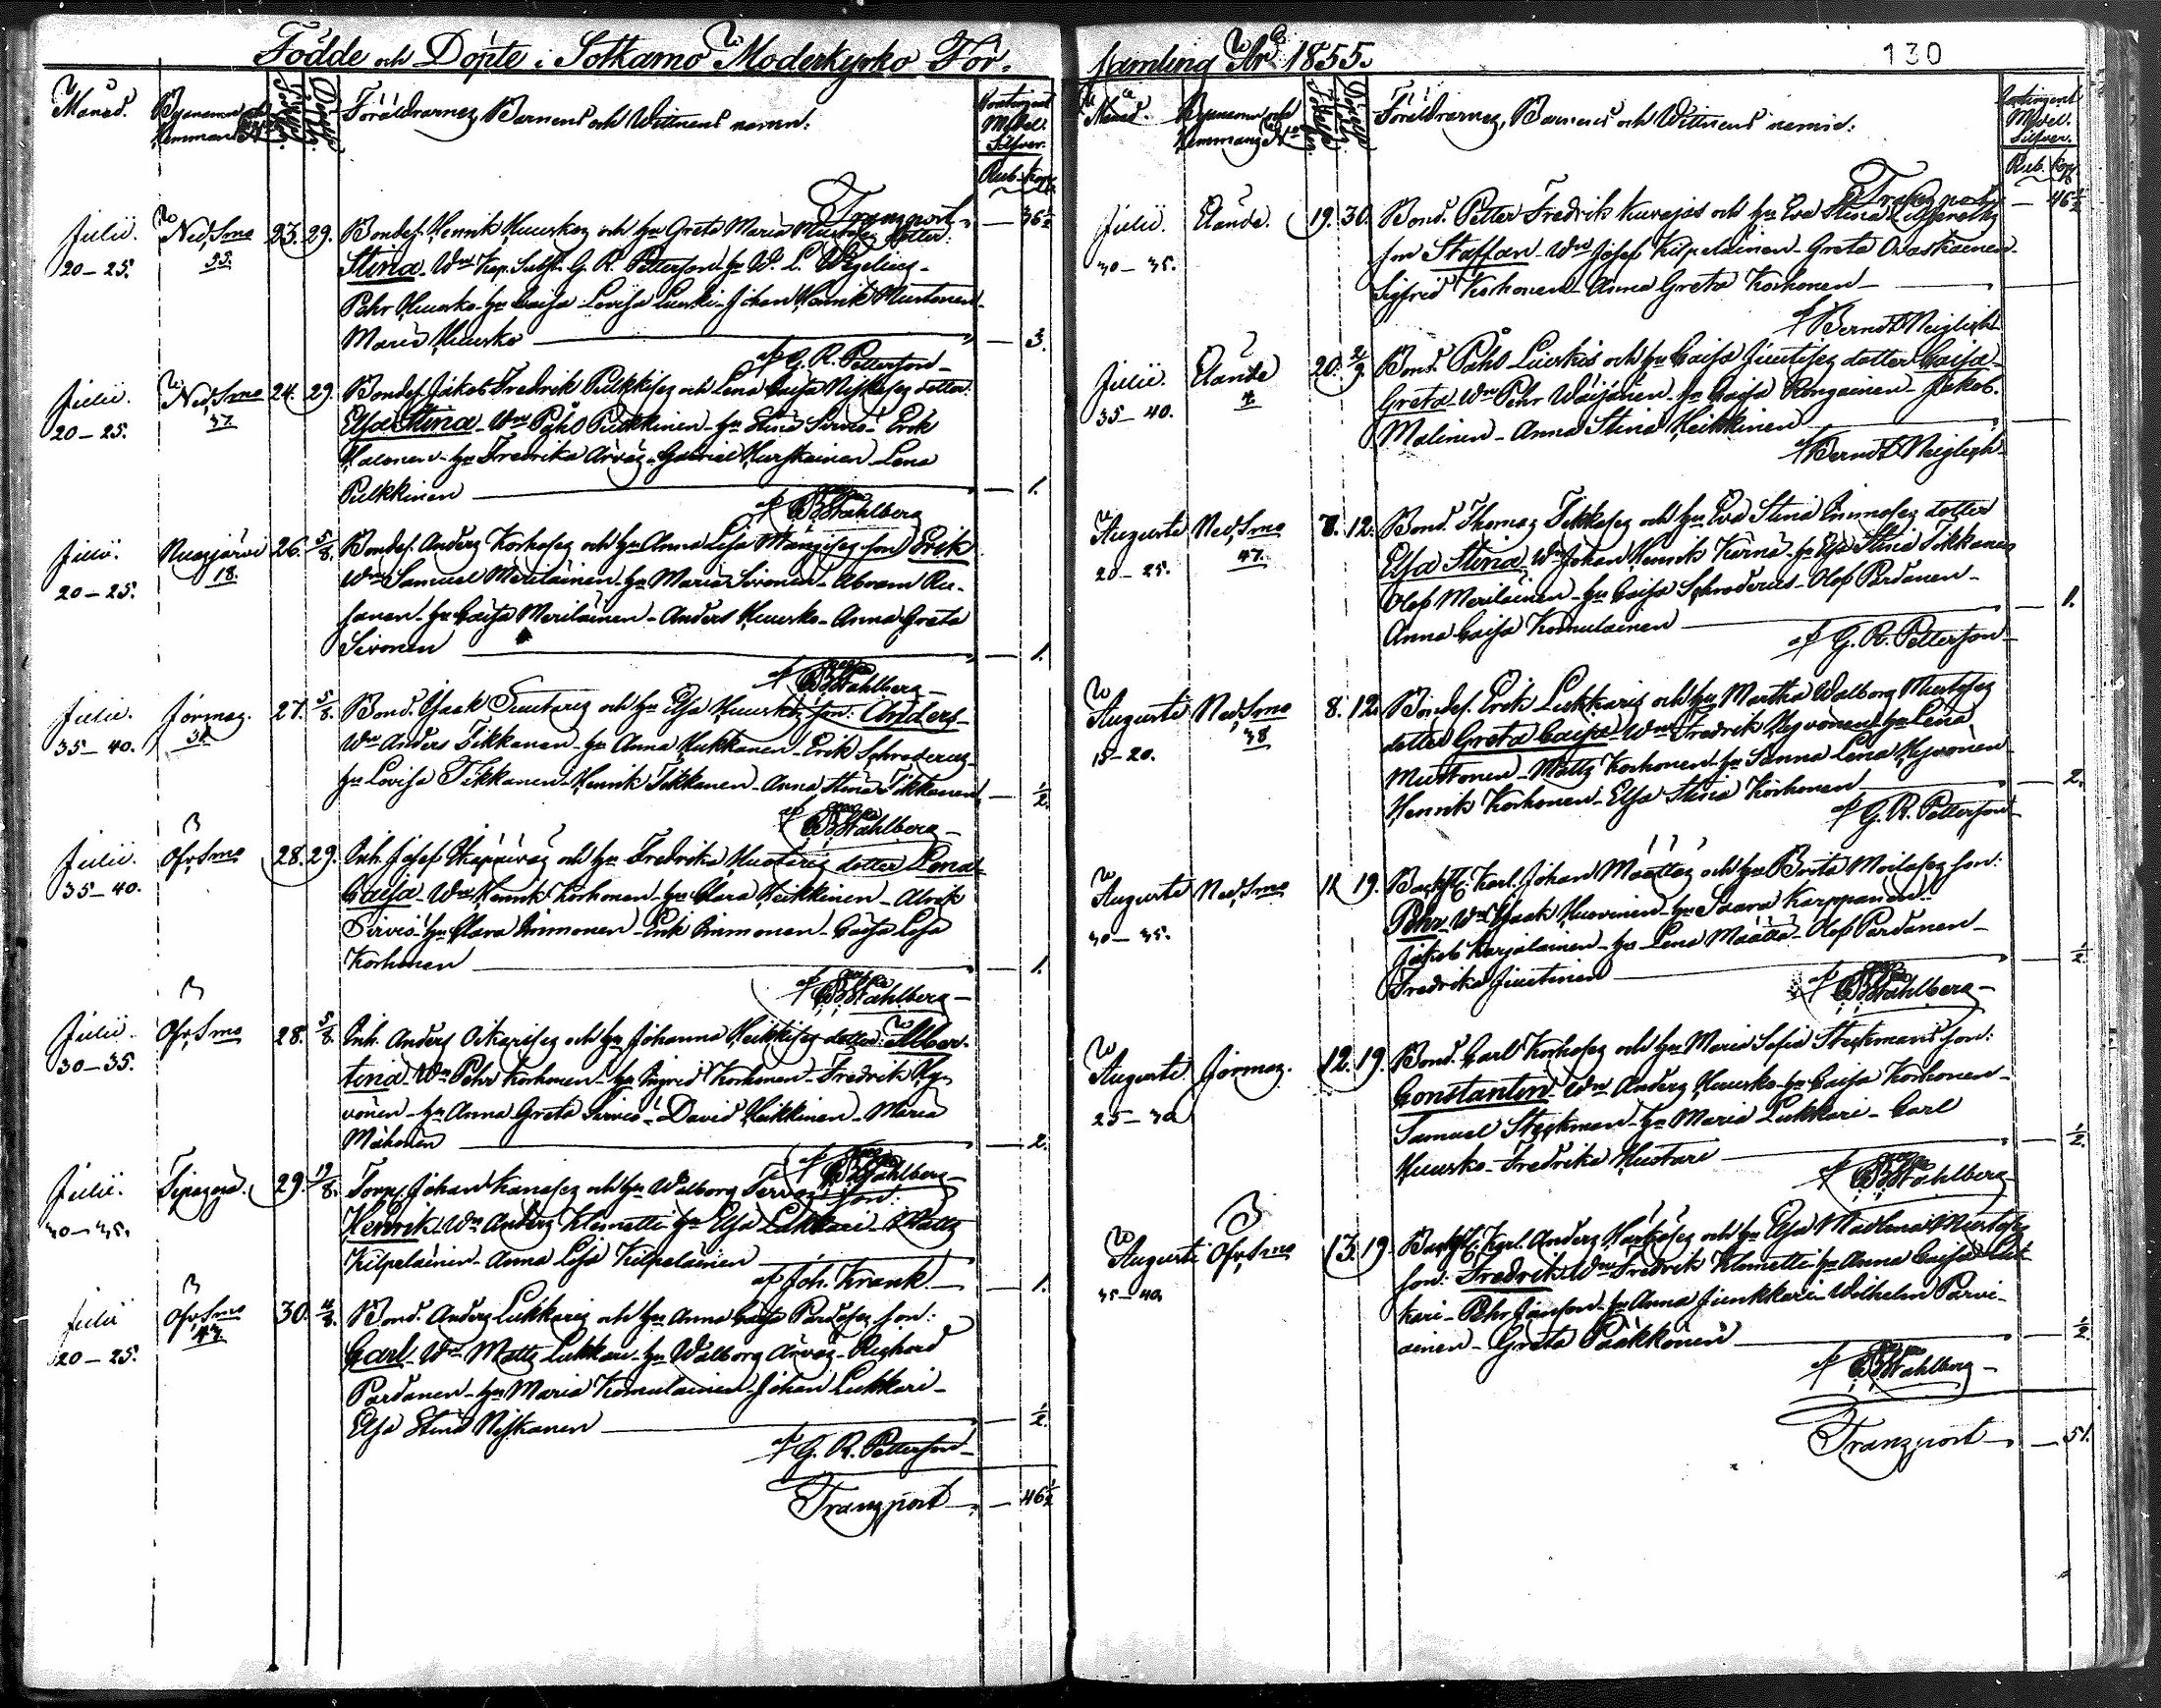 Födde och Döpte i Sotkamo Moderkyrko För-
Månad. Bynamn och Hemmans No Födelse Döpelse Föräldrarnes, Barnens och Wittnens namn: Contingent Medel. Silfver.
Rub. Kop.
Transport — 36½
Julii. Ned,Smo 23. 29. Bondes. Henrik Huuskos och hu Greta Maria Mustoses dotter:
20–25. 55. Stina. Wne Kap. Subst. G. R. Petterson hu W. L. Wegelius –
Pehr Huusko – hu Caisa Lovisa Luuski – Johan Henrik Mustonen –
Maria Huusko — 3.
af G. R. Petterson –
Julii. Ned,Smo 24. 29. Bondes. Jakob Fredrik Pulkkises och Lena Caisa Niskases dotter:
20–25. 37. Elsa Stina – Wne Påhl Pulkkinen – hu Stina Sirviö – Erik
Halonen – hu Fredrika Arvas – Gabriel Kurskainen – Lena
Pulkkinen — 1.
af Ståhlberg
Julii. Nuasjärvi 26. 5/8. Bondes. Anders Korhoses och hu Anna Lisa Mangises son Erik
20–25. 18. Wne Samuel Meriläinen – hu Maria Sivonen – Abram Ru-
sanen – hu Caisa Meriläinen – Anders Huusko – Anna Greta
Sivonen — 1.
af Ståhlberg –
Julii. Jormas. 27. 5/8. Bond. Isaak Suutaris och hu Elsa Huuskos son: Anders –
35–40. Wne Anders Tikkanen – hu Anna Hukkanen – Erik Schroderus –
hu Lovisa Tikkanen – Henrik Tikkanen – Anna Stina Tikkanen — ½.
af Ståhlberg –
Julii. Ofv,Smo 28. 29. Inh. Josef och hu Fredrika Huotaris dotter Lena
35–40. Caisa – Wne Henrik Korhonen – hu Clara Heikkinen –
Sirviö – hu Clara Kinnunen – Erik Kinnunen – Caisa Lisa
Korhonen — 1.
af Ståhlberg –
Julii. Ofv,Smo 28. 5/8. Inh. Anders Oikarises och hu Johanna Heikkises dotter: Alber-
30–35. tina – Wne Pehr Korhonen – hu Ingrid Korhonen – Fredrik Hy-
vönen – hu Anna Greta Sirviö – David Heikkinen – Maria
Mähönen — 2.
af Ståhlberg –
Julii. Tipasoja. 29. 19/8. Torp. Johan Kanases och hu Walborg Tervos son:
30–35. Henrik – Wne Anders Klemetti – hu Elsa Lukkari – Matts
Kilpeläinen – Anna Lisa Kilpeläinen — 1.
af Joh. Krank.
Julii Ofv,Smo 30. Bond. Anders Lukkaris och hu Anna Caisa Pardases son:
20–25. Carl – Wne Matts Lukkari – hu Walborg Arvas – Righard
Pardanen – hu Maria Komulainen – Johan Lukkari –
Elsa Stina Niskanen — ½.
af G. R. Petterson –
Transport — 46½
samling År 1855.
130
Månad. Bynamn och Hemmans No Födelse Döpelse Föräldrarnes, Barnens och Wittnens namn: Contingent Medel. Silfver.
Rub. Kop.
Transport — 46½
Julii. Ontande. 19. 30. Bond. Petter Fredrik Kuvajas och hu Eva Stina
30–35. son Staffan – Wne Josef Kilpeläinen – Greta Ovaskainen –
Sigfrid Korhonen – Anna Greta Korhonen —
af Berndt Neiglick
Julii. 20. 2/9. Bond. Påhl Luuskis och hu Caisa Juutises dotter Caisa
35–40. 4. Greta – Wne Pehr Väisänen – hu Caisa Rongainen – Jakob
Malinen – Anna Stina Heikkinen —
af Berndt Neiglick
Augusti Ned,Smo 7. 12. Bond. Thomas Tikkases och hu Eva Stina Kinnuses dotter
20–25. 47. Elsa Stina – Wne Johan Henrik Kärnä – hu Elsa Stina Tikkanen
Olof Meriläinen – hu Caisa Schroderus – Olof Pardanen –
Anna Caisa Komulainen — 1.
af G. R. Petterson –
Augusti Ned,Smo 8. 12. Bondes. Erik Lukkaris och hu Martha Walborg Mustoses
15–20. 38 dotter Greta Caisa – Wne Fredrik Hyvönen – hu Lena
Mustonen – Matts Korhonen – hu Sanna Lena Hyvönen
Henrik Korhonen – Elsa Stina Korhonen — 2.
af G. R. Petterson
Augusti Ned,Smo 11. 19. Backst. Karl. Johan Määttäs och hu Brita Moilases son:
30–35. Pehr – Wne Isaak Huovinen – hu Saara Karppanen –
Jakob Karjalainen – hu Lena Määttä – Olof Pardanen –
Fredrika Juutinen — ½.
af Ståhlberg –
Augusti Jormas. 12. 19. Bond. Carl Korhoses och hu Maria Sofia Steckmans son:
25–30 Constantin – Wne Anders Huusko – hu Caisa Korhonen –
Samuel Steckman – hu Maria Lukkari – Carl
Huusko – Fredrika Huotari — ½.
af Ståhlberg –
Augusti Ofv,Smo 13. 19. Backst. Karl. Anders Härköses och hu Elsa Madlena Mustoses
35–40. son: Fredrik – Wne Fredrik Klemetti – hu Anna Caisa Luk-
kari – Pehr Janson – hu Anna Junkkari – Wilhelm Parvi-
ainen – Greta Pääkkönen — ½.
af Ståhlberg –
Transport — 51.